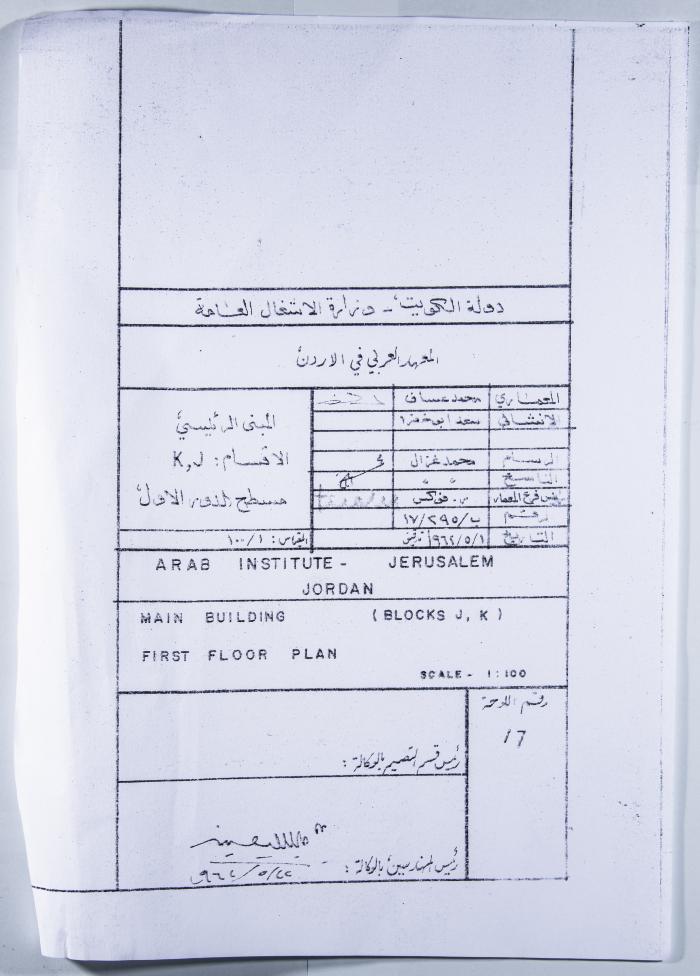 دولة الكويت - وزارة الاشغال العامة
المعهد العربي في الاردن
المعماري محمد عساف
الانشائي سعد ابو خضرا
الرسام محمد غزال
الناسخ " "
رئيس فرع المعمار ر. فوكس
رقم ب/٢٩٥/١٧
التاريخ ٩٦٤/٥/١ تدقيق
المبنى الرئيسي
الاقسام: J, K
مسطح الدور الاول
المقياس: ١٠٠/١
ARAB INSTITUTE - JERUSALEM
JORDAN
MAIN BUILDING (BLOCKS J, K)
FIRST FLOOR PLAN
SCALE - 1:100
رقم اللوحة
17
رئيس قسم التصميم بالوكالة :
رئيس المهندسين بالوكالة :